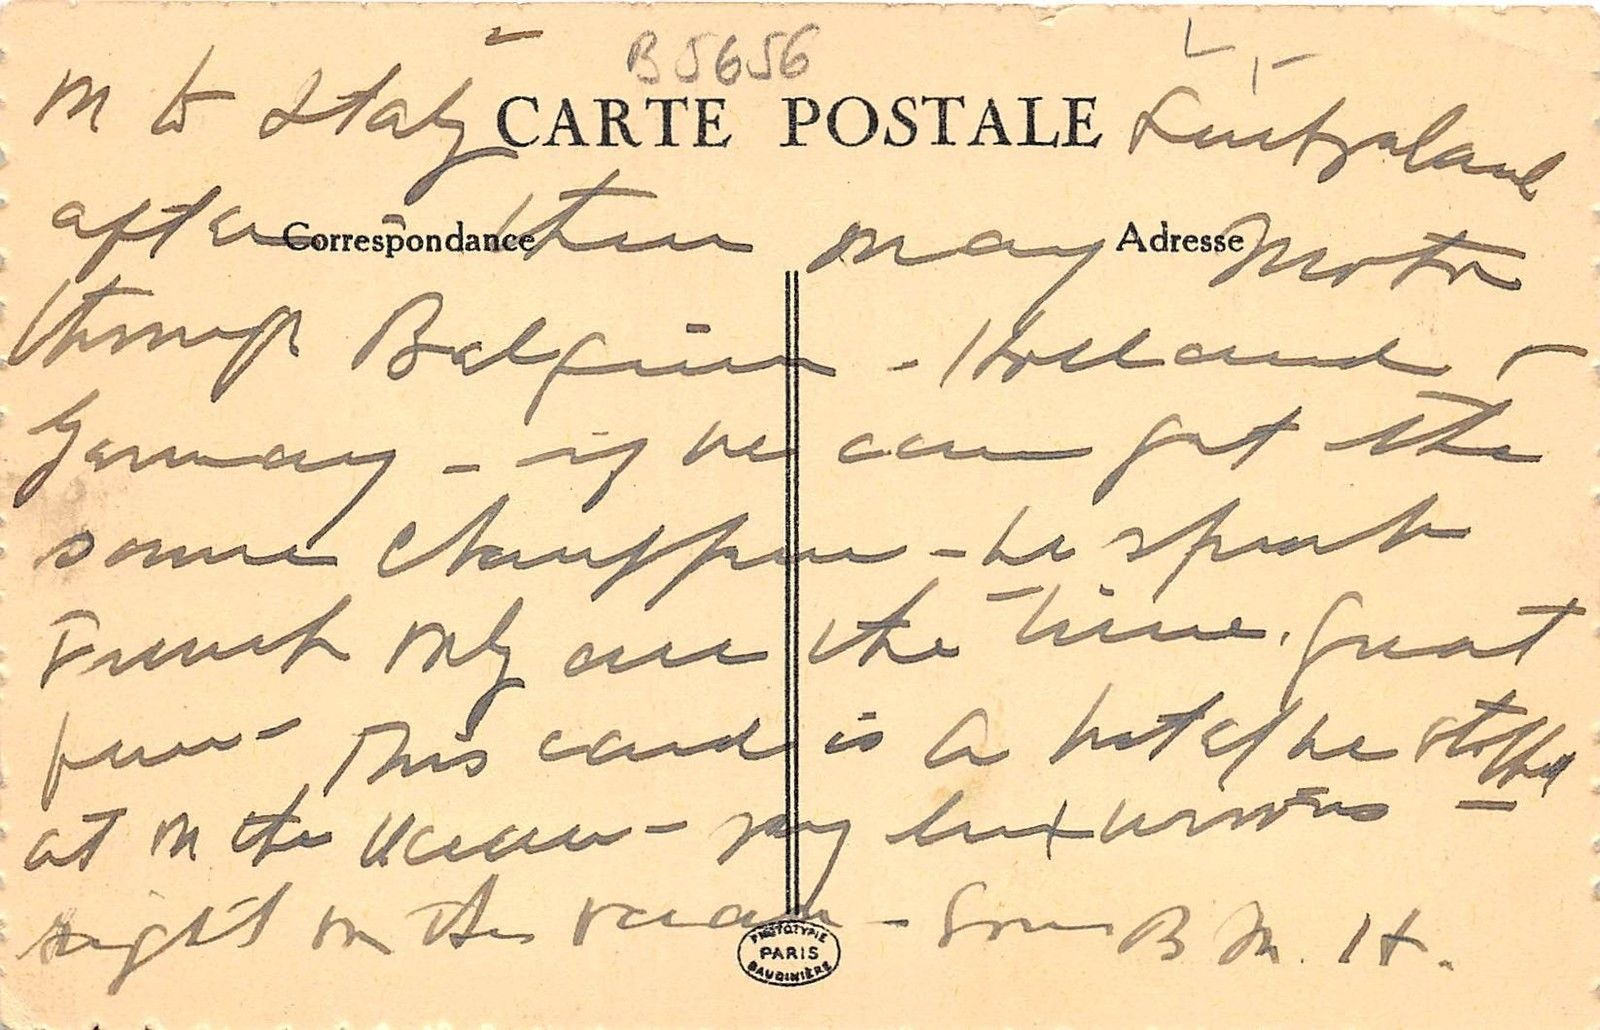 B5656
on to Italy - Switzerland
CARTE POSTALE
after then may motor
Correspondance
Adresse
through Belgium - Holland +
Germany - if we can get the
same chauffeur - he speaks
French only all the time. Great
fun - This card is a hotel we stopped
at on the ocean - very luxurious -
right on the ocean - Love B. M. H.
PHOTOTYPIE
PARIS
BAUDINIÈRE